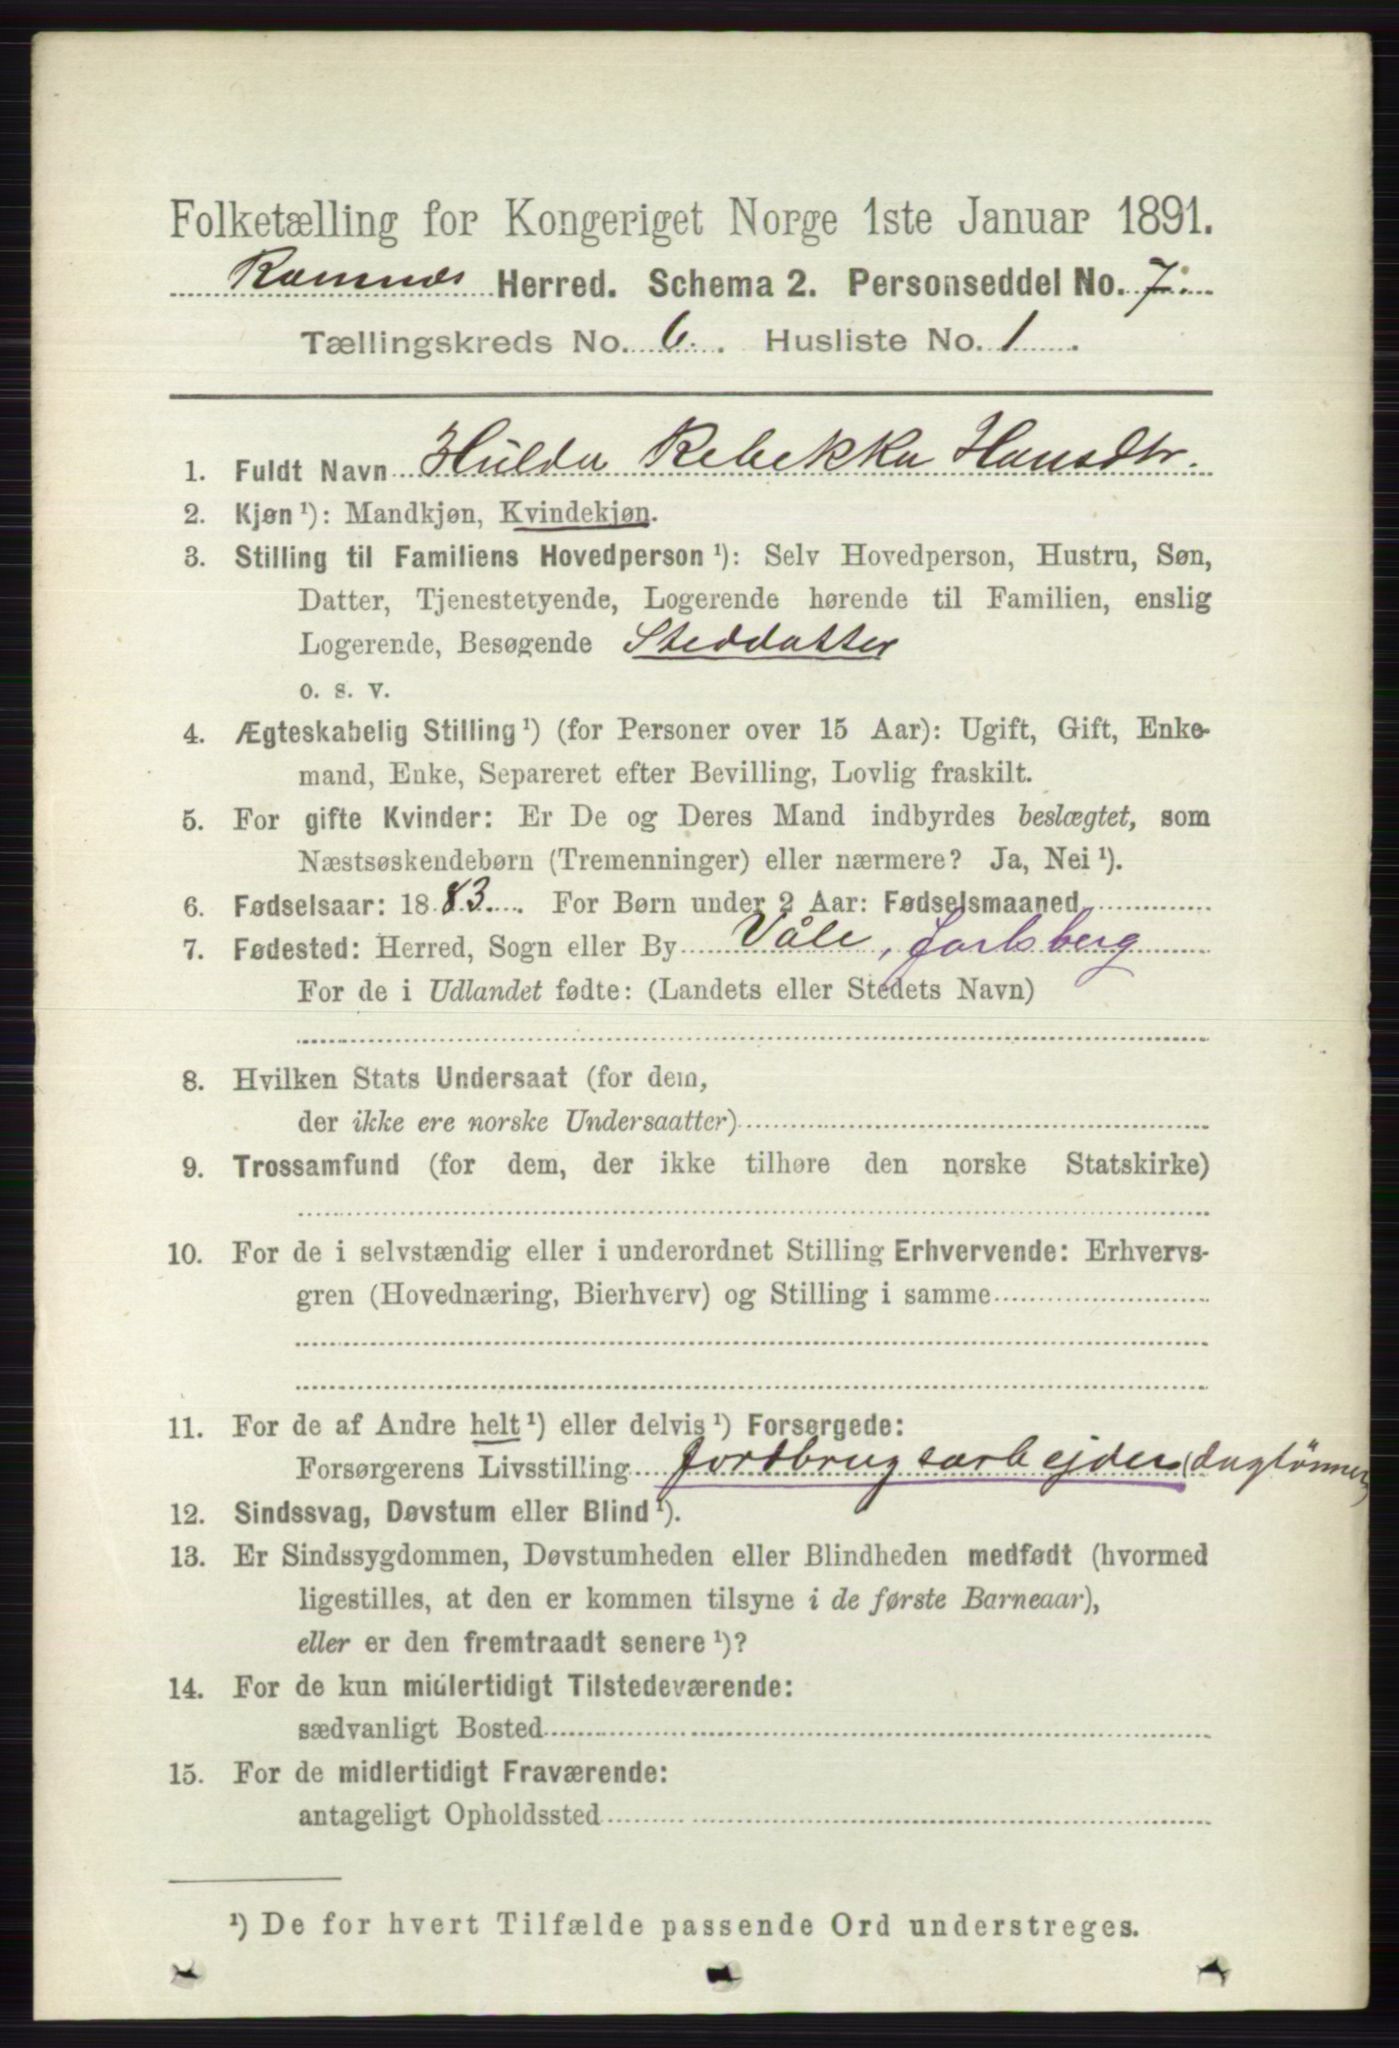 Folketælling for Kongeriget Norge 1ste Januar 1891.
Ramnes Herred. Schema 2. Personseddel No. 7.
Tællingskreds No. 6. Husliste No. 1.
1. Fuldt Navn Hulda Rebekka Hansdtr.
2. Kjøn ¹): Mandkjøn, Kvindekjøn.
3. Stilling til Familiens Hovedperson ¹): Selv Hovedperson, Hustru, Søn,
Datter, Tjenestetyende, Logerende hørende til Familien, enslig
Logerende, Besøgende Steddatter
o. s. v.
4. Ægteskabelig Stilling ¹) (for Personer over 15 Aar): Ugift, Gift, Enke-
mand, Enke, Separeret efter Bevilling, Lovlig fraskilt.
5. For gifte Kvinder: Er De og Deres Mand indbyrdes beslægtet, som
Næstsøskendebørn (Tremenninger) eller nærmere? Ja, Nei ¹).
6. Fødselsaar: 1883. For Børn under 2 Aar: Fødselsmaaned
7. Fødested: Herred, Sogn eller By Våle, Jarlsberg
For de i Udlandet fødte: (Landets eller Stedets Navn)
8. Hvilken Stats Undersaat (for dem,
der ikke ere norske Undersaatter)
9. Trossamfund (for dem, der ikke tilhøre den norske Statskirke)
10. For de i selvstændig eller i underordnet Stilling Erhvervende: Erhvervs-
gren (Hovednæring, Bierhverv) og Stilling i samme
11. For de af Andre helt ¹) eller delvis ¹) Forsørgede:
Forsørgerens Livsstilling Jordbrugsarbejder (daglönner)
12. Sindssvag, Døvstum eller Blind ¹).
13. Er Sindssygdommen, Døvstumheden eller Blindheden medfødt (hvormed
ligestilles, at den er kommen tilsyne i de første Barneaar),
eller er den fremtraadt senere ¹)?
14. For de kun midlertidigt Tilstedeværende:
sædvanligt Bosted
15. For de midlertidigt Fraværende:
antageligt Opholdssted
¹) De for hvert Tilfælde passende Ord understreges.